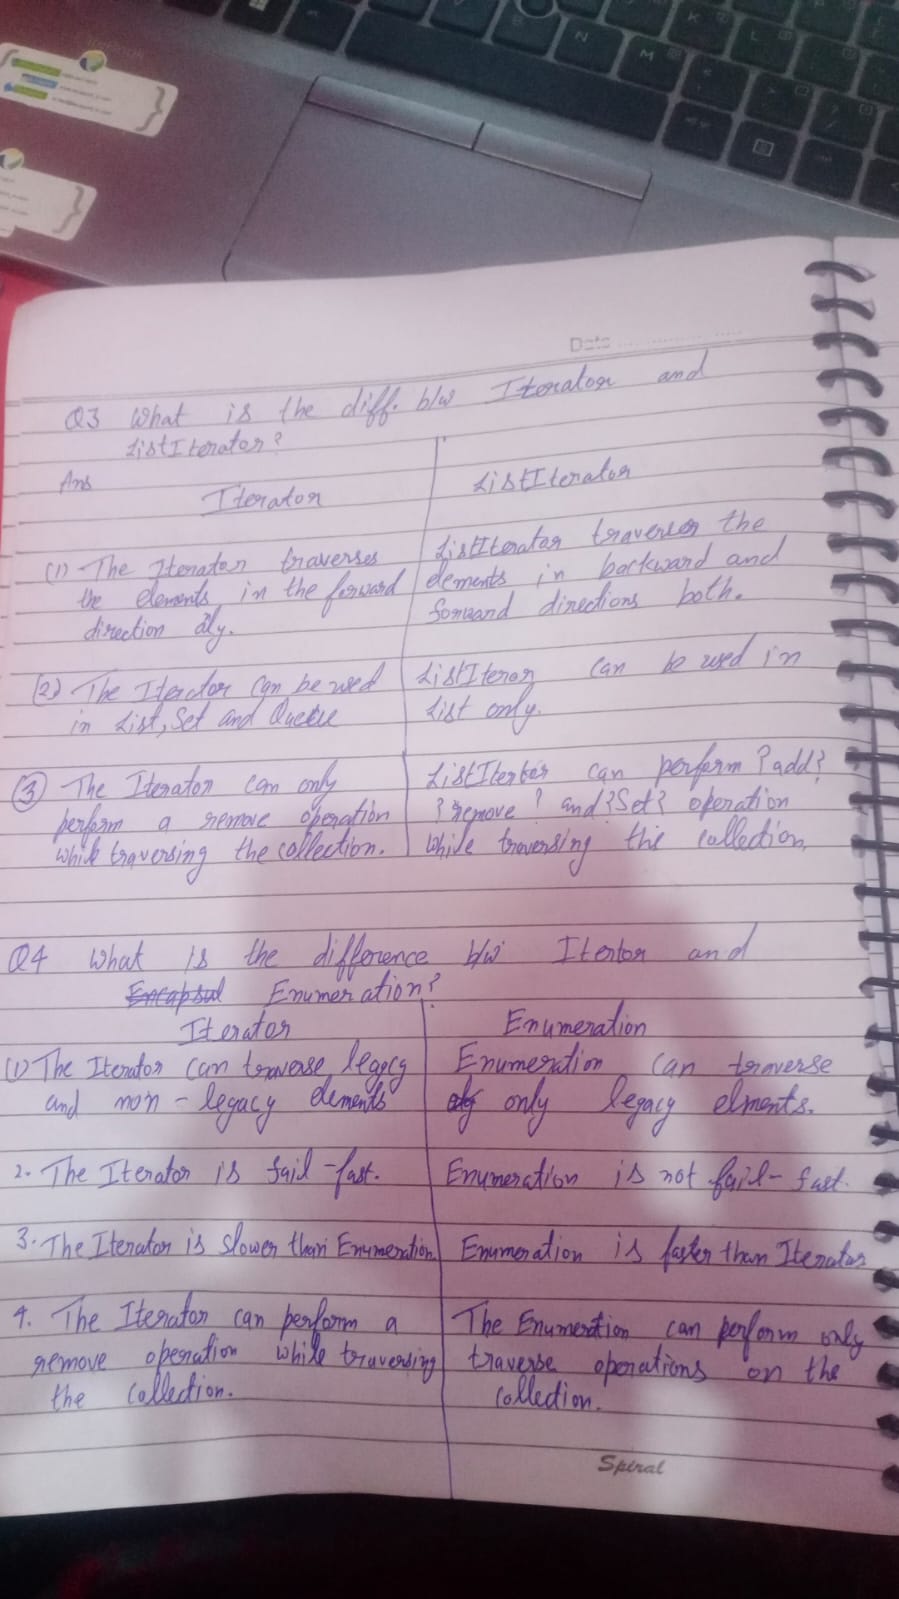 Date
Q3 What is the diff. b/w Iterator and
ListIterator?
Ans
Iterator
ListIterator
(1) The Iterator traverses
the elements in the forward
direction
ListIterator traverses the
elements in backward and
forward directions both.
(2) The Iterator can be used
in List, Set and Queue
ListIteror can be used in
List only.
(3) The Iterator can only
perform a remove operation
while traversing the collection.
can perform ?add?
?remove? and ?Set? operation
while traversing the collection,
Q4 What is the difference b/w and
Enumeration?
Iterator
Enumeration
(1) The Iterator can traverse legacy
and non-legacy elements
Enumeration can traverse
only legacy elments.
2. The Iterator is fail-fast.
Enumeration is not fail-fast.
3. The Iterator is slower than Enumeration
Enumeration is faster than Iterator
4. The Iterator can perform a
remove operation while traversing
the collection.
The can perform only
traverse operations on the
collection.
Spiral